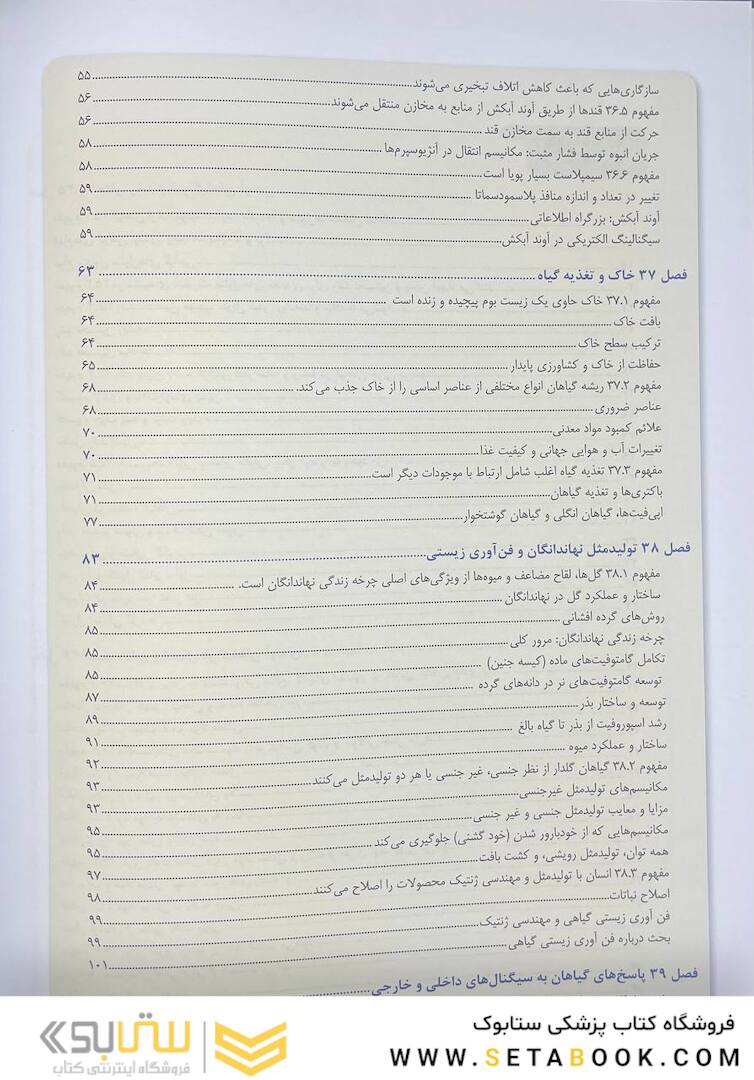 سازگاری‌هایی که باعث کاهش اتلاف تبخیری می‌شوند ۵۵
مفهوم ۳۶.۵ قندها از طریق آوند آبکش از منابع به مخازن منتقل می‌شوند ۵۶
حرکت از منابع قند به سمت مخازن قند ۵۶
جریان انبوه توسط فشار مثبت: مکانیسم انتقال در آنژیوسپرم‌ها ۵۸
مفهوم ۳۶.۶ سیمپلاست بسیار پویا است ۵۸
تغییر در تعداد و اندازه منافذ پلاسمودسماتا ۵۹
آوند آبکش: بزرگراه اطلاعاتی ۵۹
سیگنالینگ الکتریکی در آوند آبکش ۵۹
فصل ۳۷ خاک و تغذیه گیاه ۶۳
مفهوم ۳۷.۱ خاک حاوی یک زیست بوم پیچیده و زنده است ۶۴
بافت خاک ۶۴
ترکیب سطح خاک ۶۴
حفاظت از خاک و کشاورزی پایدار ۶۵
مفهوم ۳۷.۲ ریشه گیاهان انواع مختلفی از عناصر اساسی را از خاک جذب می‌کند. ۶۸
عناصر ضروری ۶۸
علائم کمبود مواد معدنی ۷۰
تغییرات آب و هوایی جهانی و کیفیت غذا ۷۰
مفهوم ۳۷.۳ تغذیه گیاه اغلب شامل ارتباط با موجودات دیگر است ۷۱
باکتری‌ها و تغذیه گیاهان ۷۱
اپی‌فیت‌ها، گیاهان انگلی و گیاهان گوشتخوار ۷۷
فصل ۳۸ تولیدمثل نهاندانگان و فن‌آوری زیستی ۸۳
مفهوم ۳۸.۱ گل‌ها، لقاح مضاعف و میوه‌ها از ویژگی‌های اصلی چرخه زندگی نهاندانگان است. ۸۴
ساختار و عملکرد گل در نهاندانگان ۸۴
روش‌های گرده افشانی ۸۵
چرخه زندگی نهاندانگان: مرور کلی ۸۵
تکامل گامتوفیت‌های ماده (کیسه جنین) ۸۵
توسعه گامتوفیت‌های نر در دانه‌های گرده ۸۷
توسعه و ساختار بذر ۸۹
رشد اسپوروفیت از بذر تا گیاه بالغ ۹۱
ساختار و عملکرد میوه ۹۲
مفهوم ۳۸.۲ گیاهان گلدار از نظر جنسی، غیر جنسی یا هر دو تولیدمثل می‌کنند ۹۳
مکانیسم‌های تولیدمثل غیرجنسی ۹۳
مزایا و معایب تولیدمثل جنسی و غیر جنسی ۹۵
مکانیسم‌هایی که از خودبارور شدن (خود گشنی) جلوگیری می‌کند ۹۵
همه توان، تولیدمثل رویشی، و کشت بافت ۹۷
مفهوم ۳۸.۳ انسان با تولیدمثل و مهندسی ژنتیک محصولات را اصلاح می‌کنند ۹۸
اصلاح نباتات ۹۹
فن آوری زیستی گیاهی و مهندسی ژنتیک ۹۹
بحث درباره فن آوری زیستی گیاهی ۱۰۱
فصل ۳۹ پاسخ‌های گیاهان به سیگنال‌های داخلی و خارجی
فروشگاه کتاب پزشکی ستابوک
WWW.SETABOOK.COM
ستابوک
فروشگاه اینترنتی کتاب